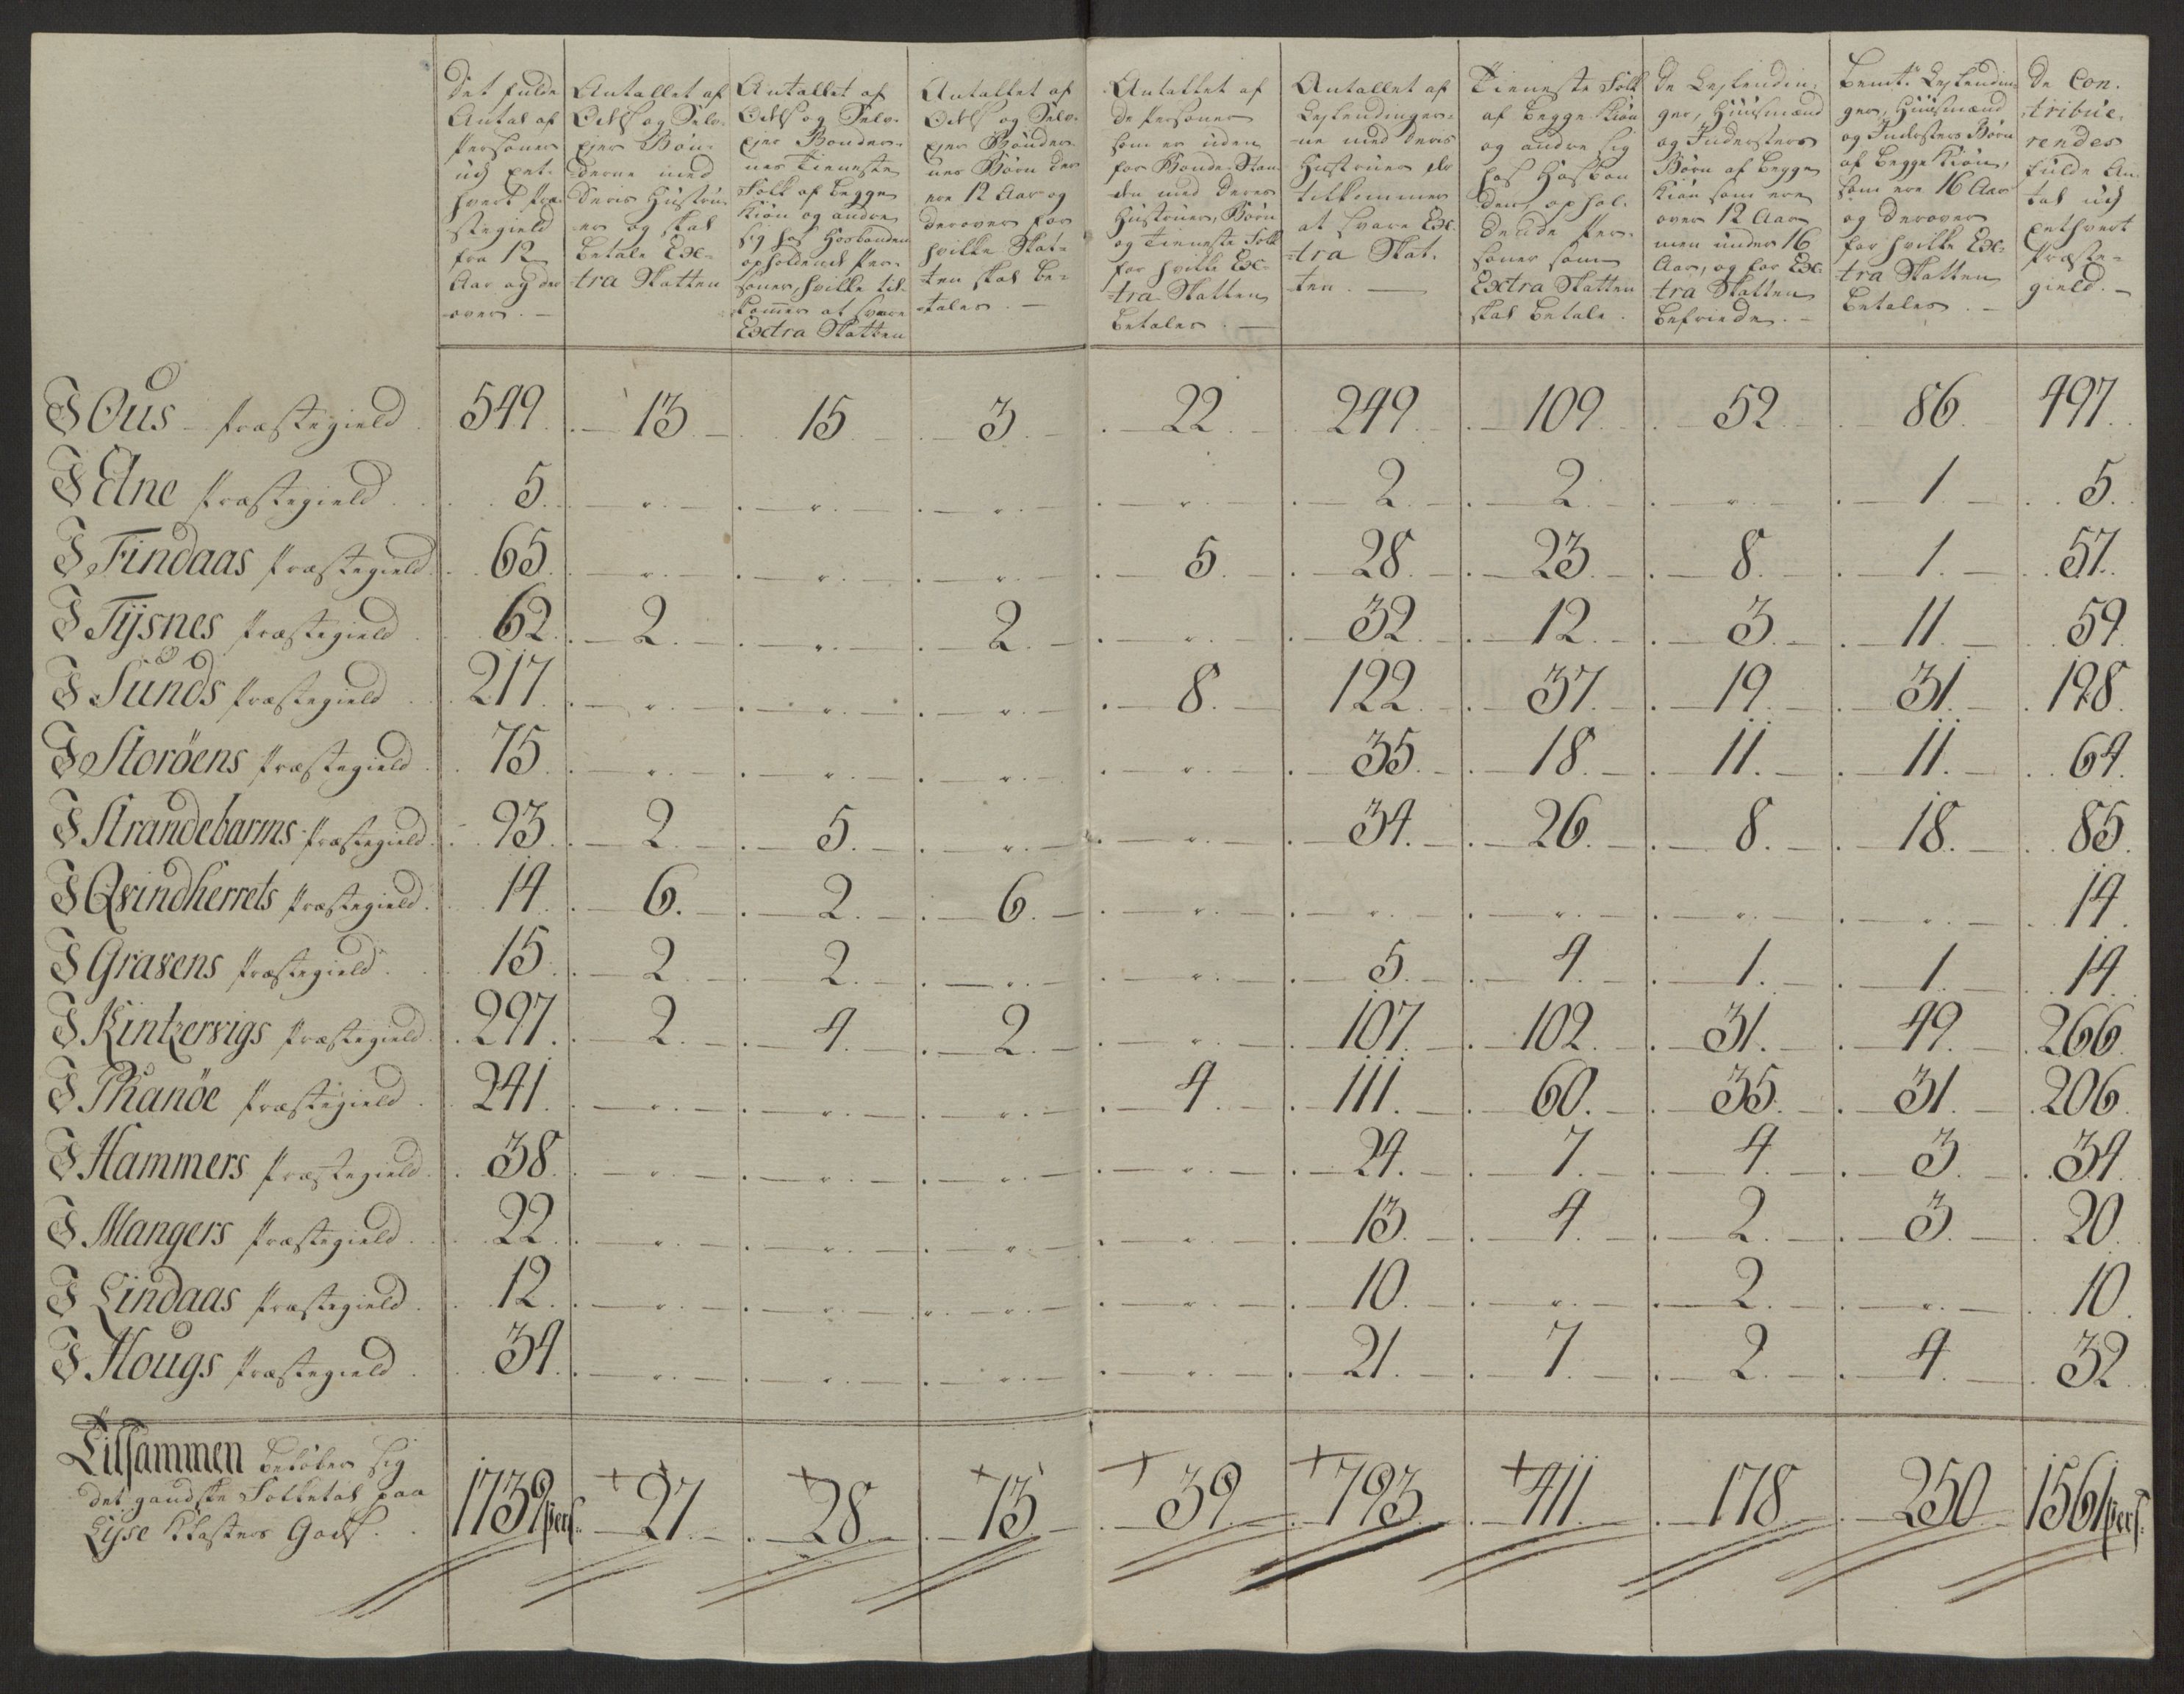 Det fulde
Antal af
Personer
udj et-
hvert Præ-
stegield
fra 12
Aar og der
over. —
Antallet af
Odels og Selv-
ejer Bøn-
derne med
deris Hustru-
er og skal
betale Ex-
tra Skatten
Antallet af
Odels og Selv-
ejer Bønder-
nes Tieneste
Folk af begge
Kiøn og andre
sig hos Hosbonden
opholdende Per-
soner, hvilke til-
kommer at svare
Extra Skatten
Antallet af
Odels og Selv-
ejer Bønder-
nes Børn der
ere 12 Aar og
derover for
hvilke Skat-
ten skal be-
tales. —
Antallet af
de Personer
som er uden
for Bonde-Stan-
den med deres
Hustruer, Børn
og Tieneste Folk
for hvilke Ex-
tra Skatten
betales. —
Antallet af
Leylendinger-
ne med deris
Hustruer der
tilkommer
at svare Ex-
tra Skat-
ten. —
Tieneste Folk
af begge Kiøn
og andre sig
hos Hosbon
den ophol-
dende Per-
soner som
Extra Skatten
skal betale.
De Leylendin-
ger, Huusmænd
og Inderster
Børn af begge
Kiøn som ere
over 12 Aar
men under 16
Aar, og for Ex-
tra Skatten
befriede. —
Bemte Leylendin-
ger, Huusmænd
og Indersters Børn
af begge Kiøn,
som ere 16 Aar
og derover
for hvilke Ex-
tra Skatten
betales. —
De Con-
tribue-
rendes
fulde An-
tal udj
ethvert
Præste-
gield. —
I Ous Præstegield 549. 13 15 3. 22. 249. 109. 52. 86. 497.
I Etne Præstegield 5. " " " " 2. 2. " 1. 5.
I Findaas Præstegield 65. " " " 5. 28. 23. 8. 1. 57.
I Tÿsnes Præstegield 62. 2. " 2. " 32. 12. 3. 11. 59.
I Sunds Præstegield 217. " " " 8. 122. 37. 19. 31. 198.
I Storöens Præstegield 75. " " " " 35. 18. 11. 11. 64.
I Strandebarms Præstegield 93. 2. 5. " " 34. 26. 8. 18. 85.
I Qvindherrets Præstegield 14. 6. 2. 6. " " " " " 14.
I Gravens Præstegield 15. 2. 2. " " 5. 4. 1. 1. 14.
I Kintzervigs Præstegield 297. 2. 4. 2. " 107. 102. 31. 49. 266.
I Phanöe Præstegield 241. " " " 4. 111. 60. 35. 31. 206.
I Hammers Præstegield 38. " " " " 24. 7. 4. 3. 34.
I Mangers Præstegield 22. " " " " 13. 4. 2. 3. 20.
I Lindaas Præstegield 12. " " " " 10. " 2. " 10.
I Hougs Præstegield 34. " " " " 21. 7. 2. 4. 32.
Tilsammen beløber sig
det gandske Folketal paa
Lyse Klosters Gods.
1739 pers. + 27. + 28. + 13 + 39. + 793. + 411. 178. 250. 1561 pers: